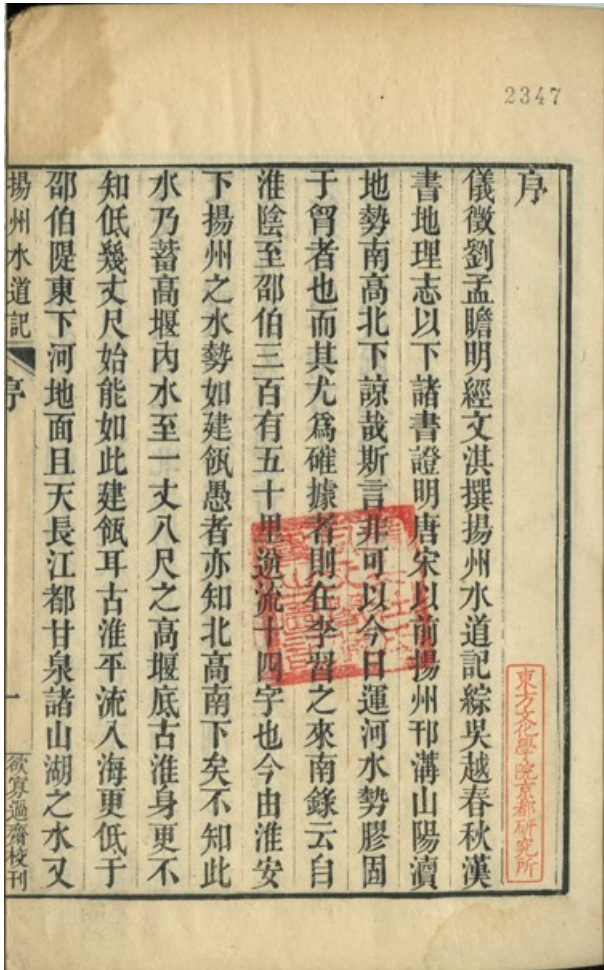 2347
序
儀徵劉孟瞻明經文淇撰揚州水道記綜吳越春秋漢
書地理志以下諸書證明唐宋以前揚州邗溝山陽瀆
地勢南高北下諒哉斯言非可以今日運河水勢膠固
于胷者也而其尤爲確據者則在李習之來南錄云自
淮陰至邵伯三百有五十里逆流十四字也今由淮安
下揚州之水勢如建瓴愚者亦知北高南下矣不知此
水乃蓄高堰內水至一丈八尺之高堰底古淮身更不
知低幾丈尺始能如此建瓴耳古淮平流入海更低于
邵伯隄東下河地面且天長江都甘泉諸山湖之水又
揚州水道記 序 一 欲寡過齋校刊
東方文化學院京都研究所